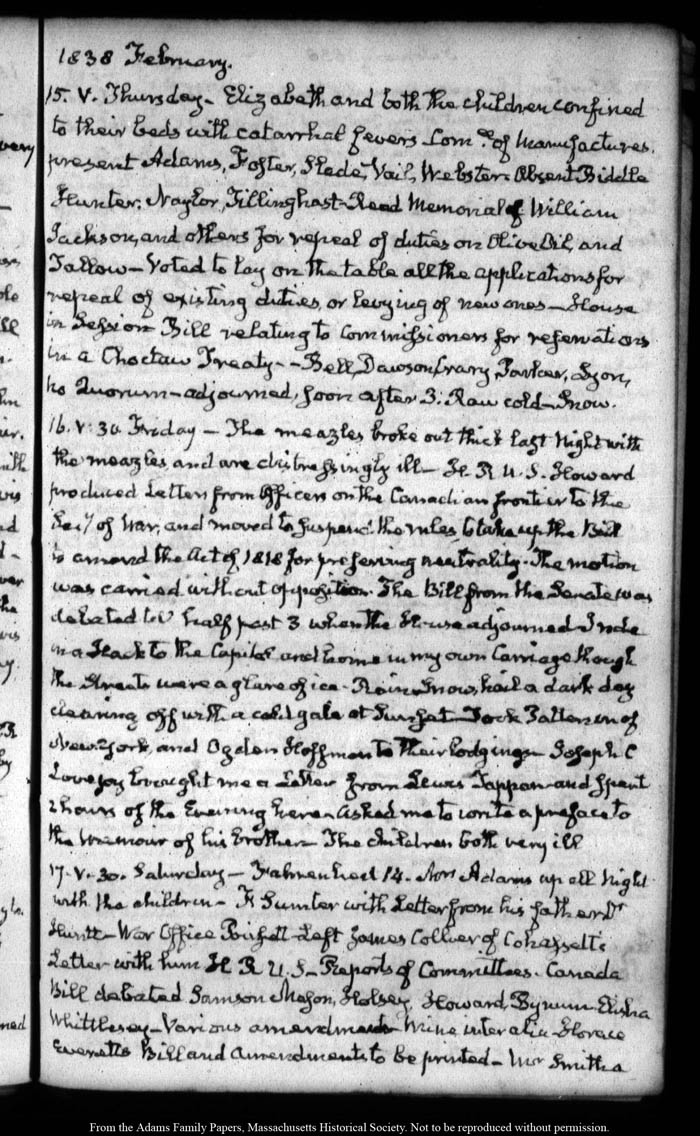 1838 February.
15. V. Thursday– Elizabeth and both the children confined
to their beds with catarrhal fevers– Comee. of Manufactures.
present Adams, Foster, Slade, Vail, Webster– Absent Biddle
Hunter, Naylor, Tillinghast– Read Memorial of William
Jackson, and others for repeal of duties on Olive Oil, and
Tallow– Voted to lay on the table all the applications for
repeal of existing duties, or levying of new ones– House
in Session– Bill relating to commissioners for reservations
in a Choctaw Treaty– Bell, Dawson, Crary, Parker, Lyon,
no Quorum– adjourned, soon after 3. Raw cold– Snow.
16. V:30. Friday– The meazles broke out thick last Night with
the meazles and are distressingly ill– H. R. U. S. Howard
produced Letters from Officers on the Canadian frontier to the
Secy. of War, and moved to suspend the rules to take up the Bill
to amend the Act of 1818 for preserving neutrality. The motion
was carried without opposition. The Bill from the Senate was
debated till half past 3 when the House adjourned– I rode
in a Hack to the Capitol and home in my own Carriage though
the Streets were a glare of ice– Rain, Snow, hail a dark day
clearing off with a cold gale at Sunset– Took Patterson of
New-York, and Ogden Hoffman to their lodgings– Joseph C
Lovejoy brought me a Letter from Lewis Tappan and spent
2 hours of the Evening here– Asked me to write a preface to
the memoir of his brother– The children both very ill
17. V. 30. Saturday– Fahrenheit 14. Mrs Adams up all Night
with the children– F. Sumter with Letter from his father Dr
Huntt– War Office Poinsett– Left James Collier of Cohassett's
Letter with him H. R. U. S– Reports of Committees. Canada
Bill debated Samson Mason, Holsey, Howard, Bynum– Elisha
Whittlesey– Various amendments– Mine inter alia– Horace
Everett's Bill and Amendments to be printed– Mr Smith a
From the Adams Family Papers, Massachusetts Historical Society. Not to be reproduced without permission.